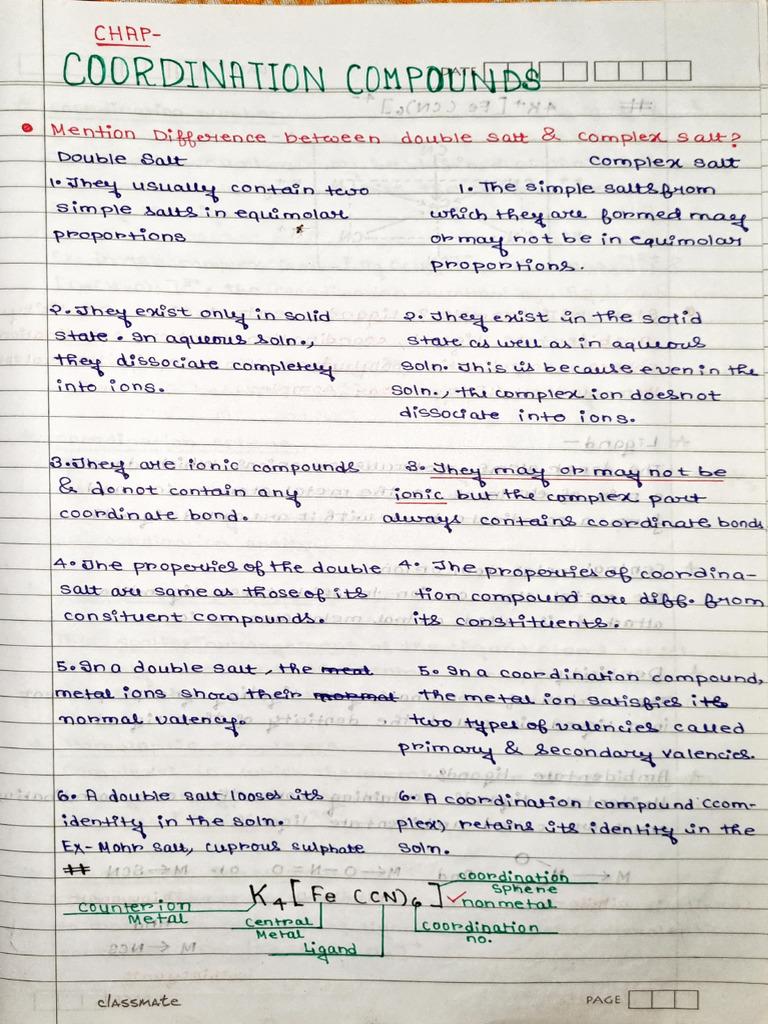 CHAP-
COORDINATION COMPOUNDS
DATE
Mention Difference between double salt & complex salt?
Double Salt
1. They usually contain two
simple salts in equimolar
proportions
2. They exist only in solid
state. In aqueous soln.,
they dissociate completely
into ions.
3. They are ionic compounds
& do not contain any
coordinate bond.
4. The properties of the double
salt are same as those of its
consituent compounds.
5. In a double salt, the meat
metal ions show their normat
normal valency.
6. A double salt looses its
identity in the soln.
Ex- Mohr salt, cuprous sulphate
Complex salt
1. The simple salts from
which they are formed may
or may not be in equimolar
proportions.
2. They exist in the solid
state as well as in aqueous
soln. This is because even in the
soln., the complex ion doesnot
dissociate into ions.
3. They may or may not be
ionic but the complex part
always contains coordinate bonds
4. The properties of coordina-
tion compound are diff. from
its constituents.
5. In a coordination compound,
the metal ion satisfies its
two types of valencies called
primary & secondary valencies.
6. A coordination compound (com-
plex) retains its identity in the
soln.
#
K4[Fe(CN)6]
coordination
sphere
nonmetal
counter ion
Metal
Central
Metal
Ligand
coordination
no.
classmate
PAGE